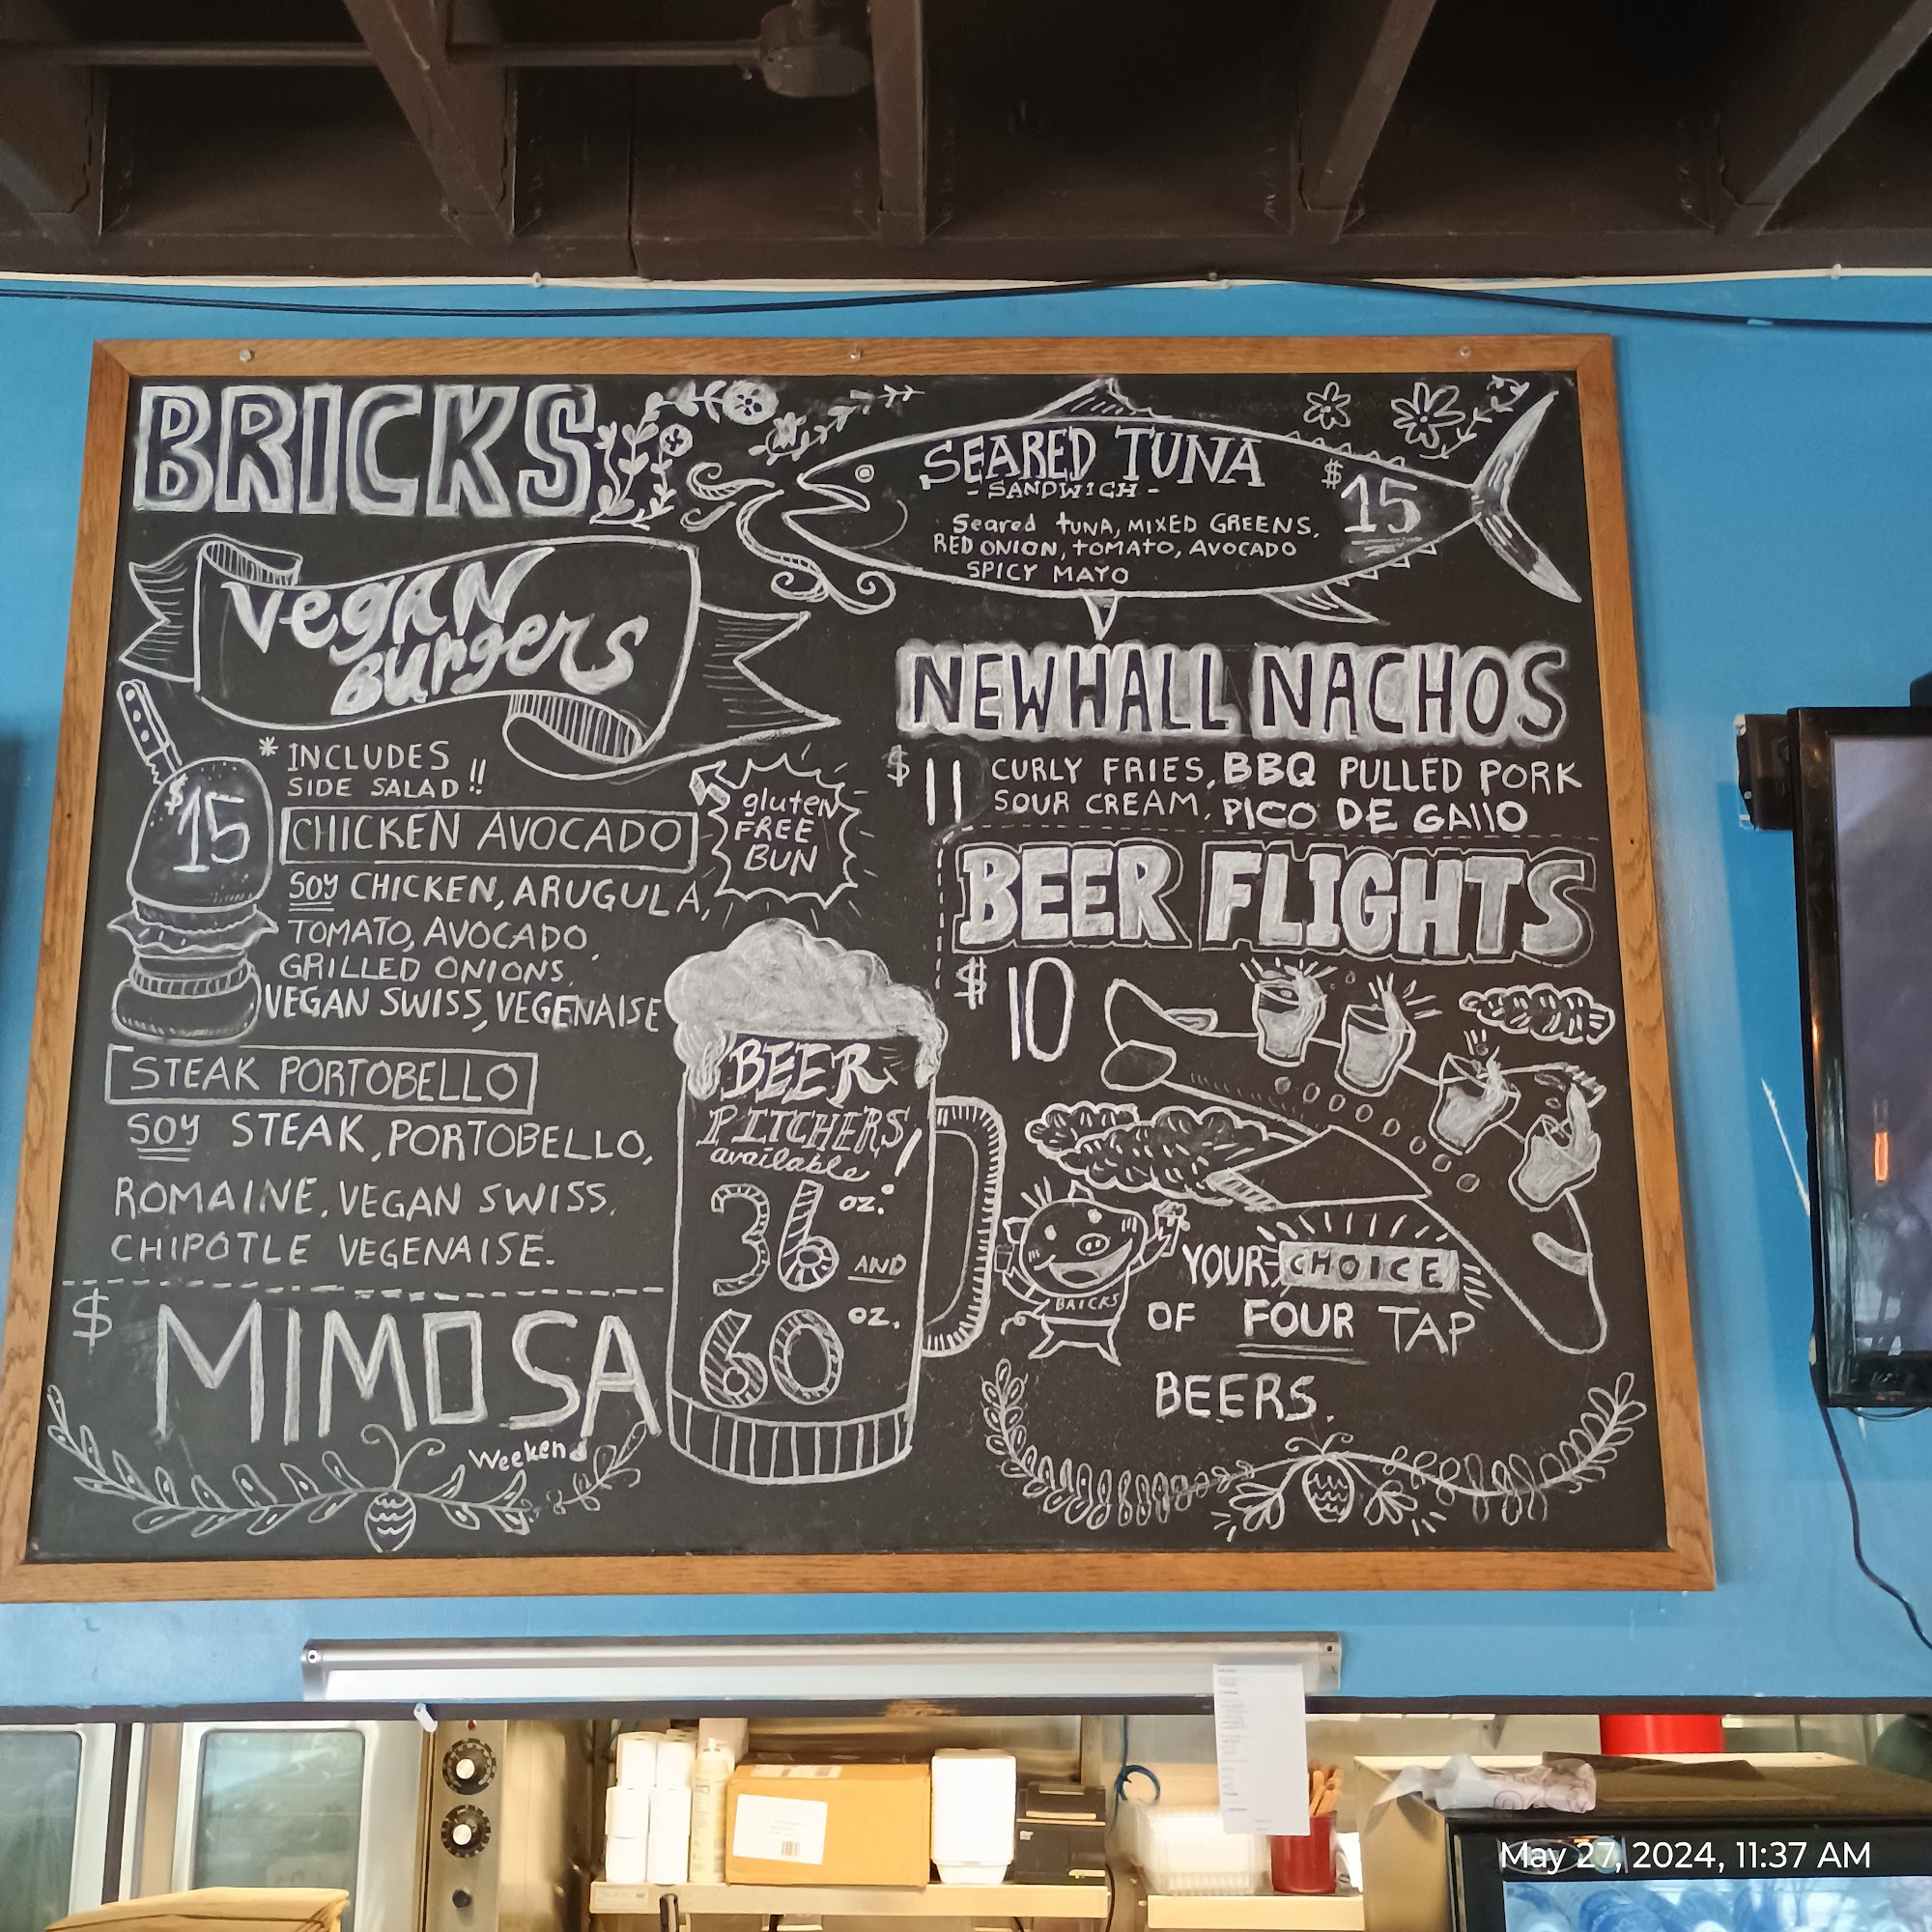 BRICKS
Vegan
Burgers
* INCLUDES
SIDE SALAD!!
$15
gluten
FREE
BUN
CHICKEN AVOCADO
SOY CHICKEN, ARUGULA,
TOMATO, AVOCADO,
GRILLED ONIONS,
VEGAN SWISS, VEGENAISE
STEAK PORTOBELLO
SOY STEAK, PORTOBELLO,
ROMAINE, VEGAN SWISS,
CHIPOTLE VEGENAISE.
$ MIMOSA
Weekend
BEER
PITCHERS
available!
36 oz.
AND
60 oz.
SEARED TUNA
- SANDWICH -
$15
Seared tUNA, MIXED GREENS,
RED ONION, tOMATO, AVOCADO
SPICY MAYO
NEWHALL NACHOS
$11
CURLY FRIES, BBQ PULLED PORK
SOUR CREAM, PICO DE GAllO
BEER FLIGHTS
$10
BRICKS
YOUR CHOICE
OF FOUR TAP
BEERS.
May 27, 2024, 11:37 AM